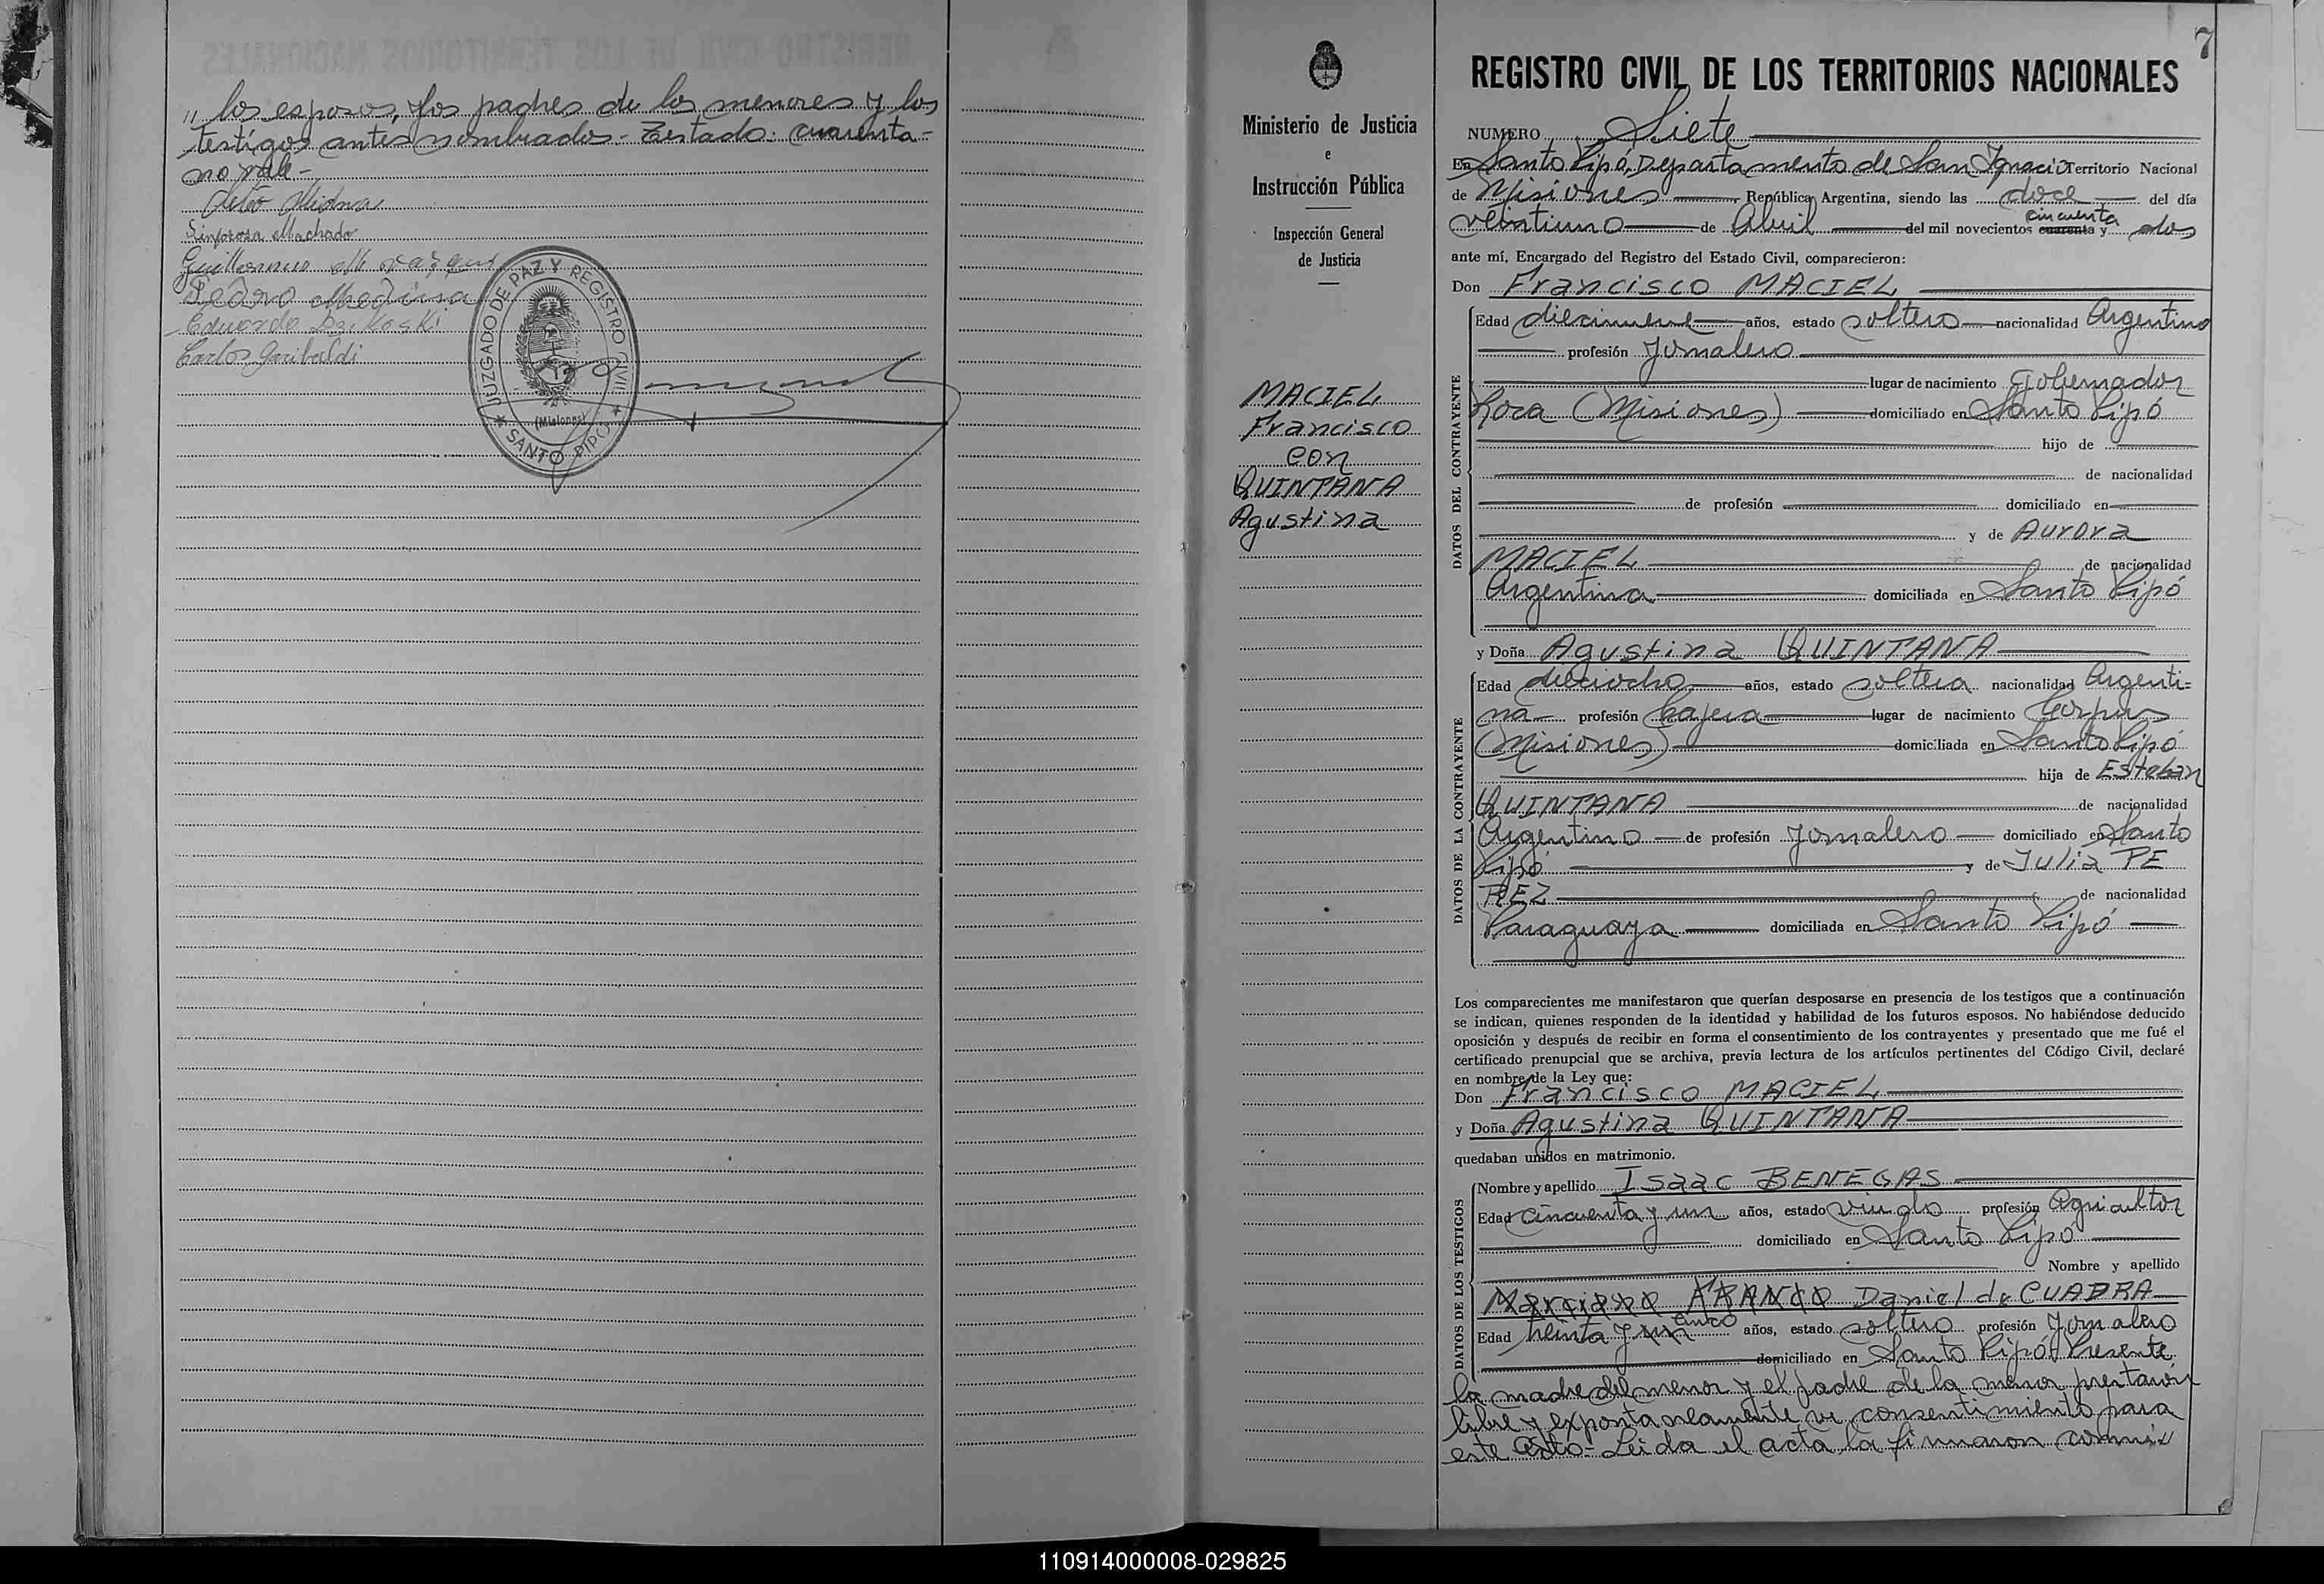 " los esposos, y los padres de los menores y los
testigos antes nombrados.- Testado: cuarenta-
no vale-
Sinforosa Machado
Guillermo
Pedro Medina
Eduardo
Carlos Garibaldi
JUZGADO DE PAZ Y REGISTRO CIVIL
(Misiones)
★ SANTO PIPÓ ★
Ministerio de Justicia
e
Instrucción Pública
Inspección General
de Justicia
MACIEL
Francisco
con
QUINTANA
Agustina
7
REGISTRO CIVIL DE LOS TERRITORIOS NACIONALES
NUMERO Siete
En Santo Pipó, Departamento de San Ignacio Territorio Nacional
de Misiones República Argentina, siendo las doce del día
veintiuno de Abril del mil novecientos cuarenta y cincuenta dos
ante mí, Encargado del Registro del Estado Civil, comparecieron:
Don Francisco MACIEL
DATOS DEL CONTRAYENTE
Edad diecinueve años, estado soltero nacionalidad Argentino
profesión Jornalero
lugar de nacimiento Gobernador
Roca (Misiones) domiciliado en Santo Pipó
hijo de
de nacionalidad
de profesión domiciliado en
y de Aurora
MACIEL de nacionalidad
Argentina domiciliada en Santo Pipó
y Doña Agustina QUINTANA
DATOS DE LA CONTRAYENTE
Edad dieciocho años, estado soltera nacionalidad Argenti=
na profesión Cajera lugar de nacimiento Corpus
(Misiones) domiciliada en Santo Pipó
hija de Esteban
QUINTANA de nacionalidad
Argentino de profesión Jornalero domiciliado en Santo
Pipó y de Julia PE
REZ de nacionalidad
Paraguaya domiciliada en Santo Pipó
Los comparecientes me manifestaron que querían desposarse en presencia de los testigos que a continuación
se indican, quienes responden de la identidad y habilidad de los futuros esposos. No habiéndose deducido
oposición y después de recibir en forma el consentimiento de los contrayentes y presentado que me fué el
certificado prenupcial que se archiva, previa lectura de los artículos pertinentes del Código Civil, declaré
en nombre de la Ley que:
Don Francisco MACIEL
y Doña Agustina QUINTANA
quedaban unidos en matrimonio.
DATOS DE LOS TESTIGOS
Nombre y apellido Isaac BENEGAS
Edad cincuenta y un años, estado viudo profesión Agricultor
domiciliado en Santo Pipó
Nombre y apellido
Daniel de CUADRA
Edad treinta y cinco años, estado soltero profesión Jornalero
domiciliado en Santo Pipó Presente
la madre del menor y el padre de la menor prestaron
libre y expontaneamente su consentimiento para
este acto- Leida el acta la firmaron conmi"
110914000008-029825